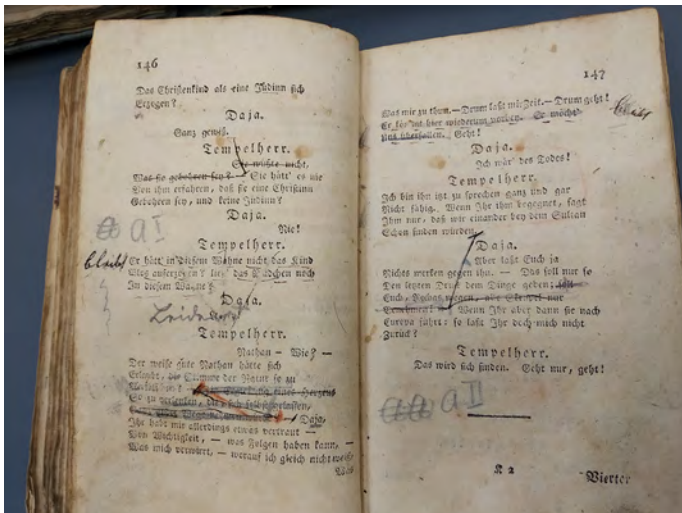 146
Das Christenkind als eine Jüdinn sich
Erzogen?
Daja.
Ganz gewiß.
Tempelherr.
Sie wüßte nicht,
Was sie gebohren sey? — Sie hätt' es nie
Von ihm erfahren, daß sie eine Christinn
Gebohren sey, und keine Jüdinn?
Daja.
Nie!
a I
Tempelherr.
bleibt
Er hätt' in diesem Wahne nicht das Kind
Blos auferzogen? ließ das Mädchen noch
In diesem Wahne?
Daja.
Leider!
Tempelherr.
Nathan — Wie? —
Der weise gute Nathan hätte sich
Erlaubt, die Stimme der Natur so zu
Verfälschen?
So zu verlenken, die, sich selbst gelassen,
Daja,
Ihr habt mir allerdings etwas vertraut —
Von Wichtigkeit, — was Folgen haben kann, —
Was mich verwirrt, — worauf ich gleich nicht weiß,
Was
147
Was mir zu thun. — Drum laßt mir Zeit. — Drum geht!
bleibt
Er kömmt hier wiederum vorbey. Er möcht'
Uns überfallen. Geht!
Daja.
Ich wär' des Todes!
Tempelherr.
Ich bin ihn itzt zu sprechen ganz und gar
Nicht fähig. Wenn Ihr ihm begegnet, sagt
Ihm nur, daß wir einander bey dem Sultan
Schon finden würden.
Daja.
Aber laßt Euch ja
Nichts merken gegen ihn. — Das soll nur so
Den letzten Druck dem Dinge geben; soll
Euch, Rechas wegen, alle Skrupel nur
Benehmen! — Wenn Ihr aber dann sie nach
Europa führt: so laßt Ihr doch mich nicht
Zurück?
Tempelherr.
Das wird sich finden. Geht nur, geht!
a II
K 2
Vierter